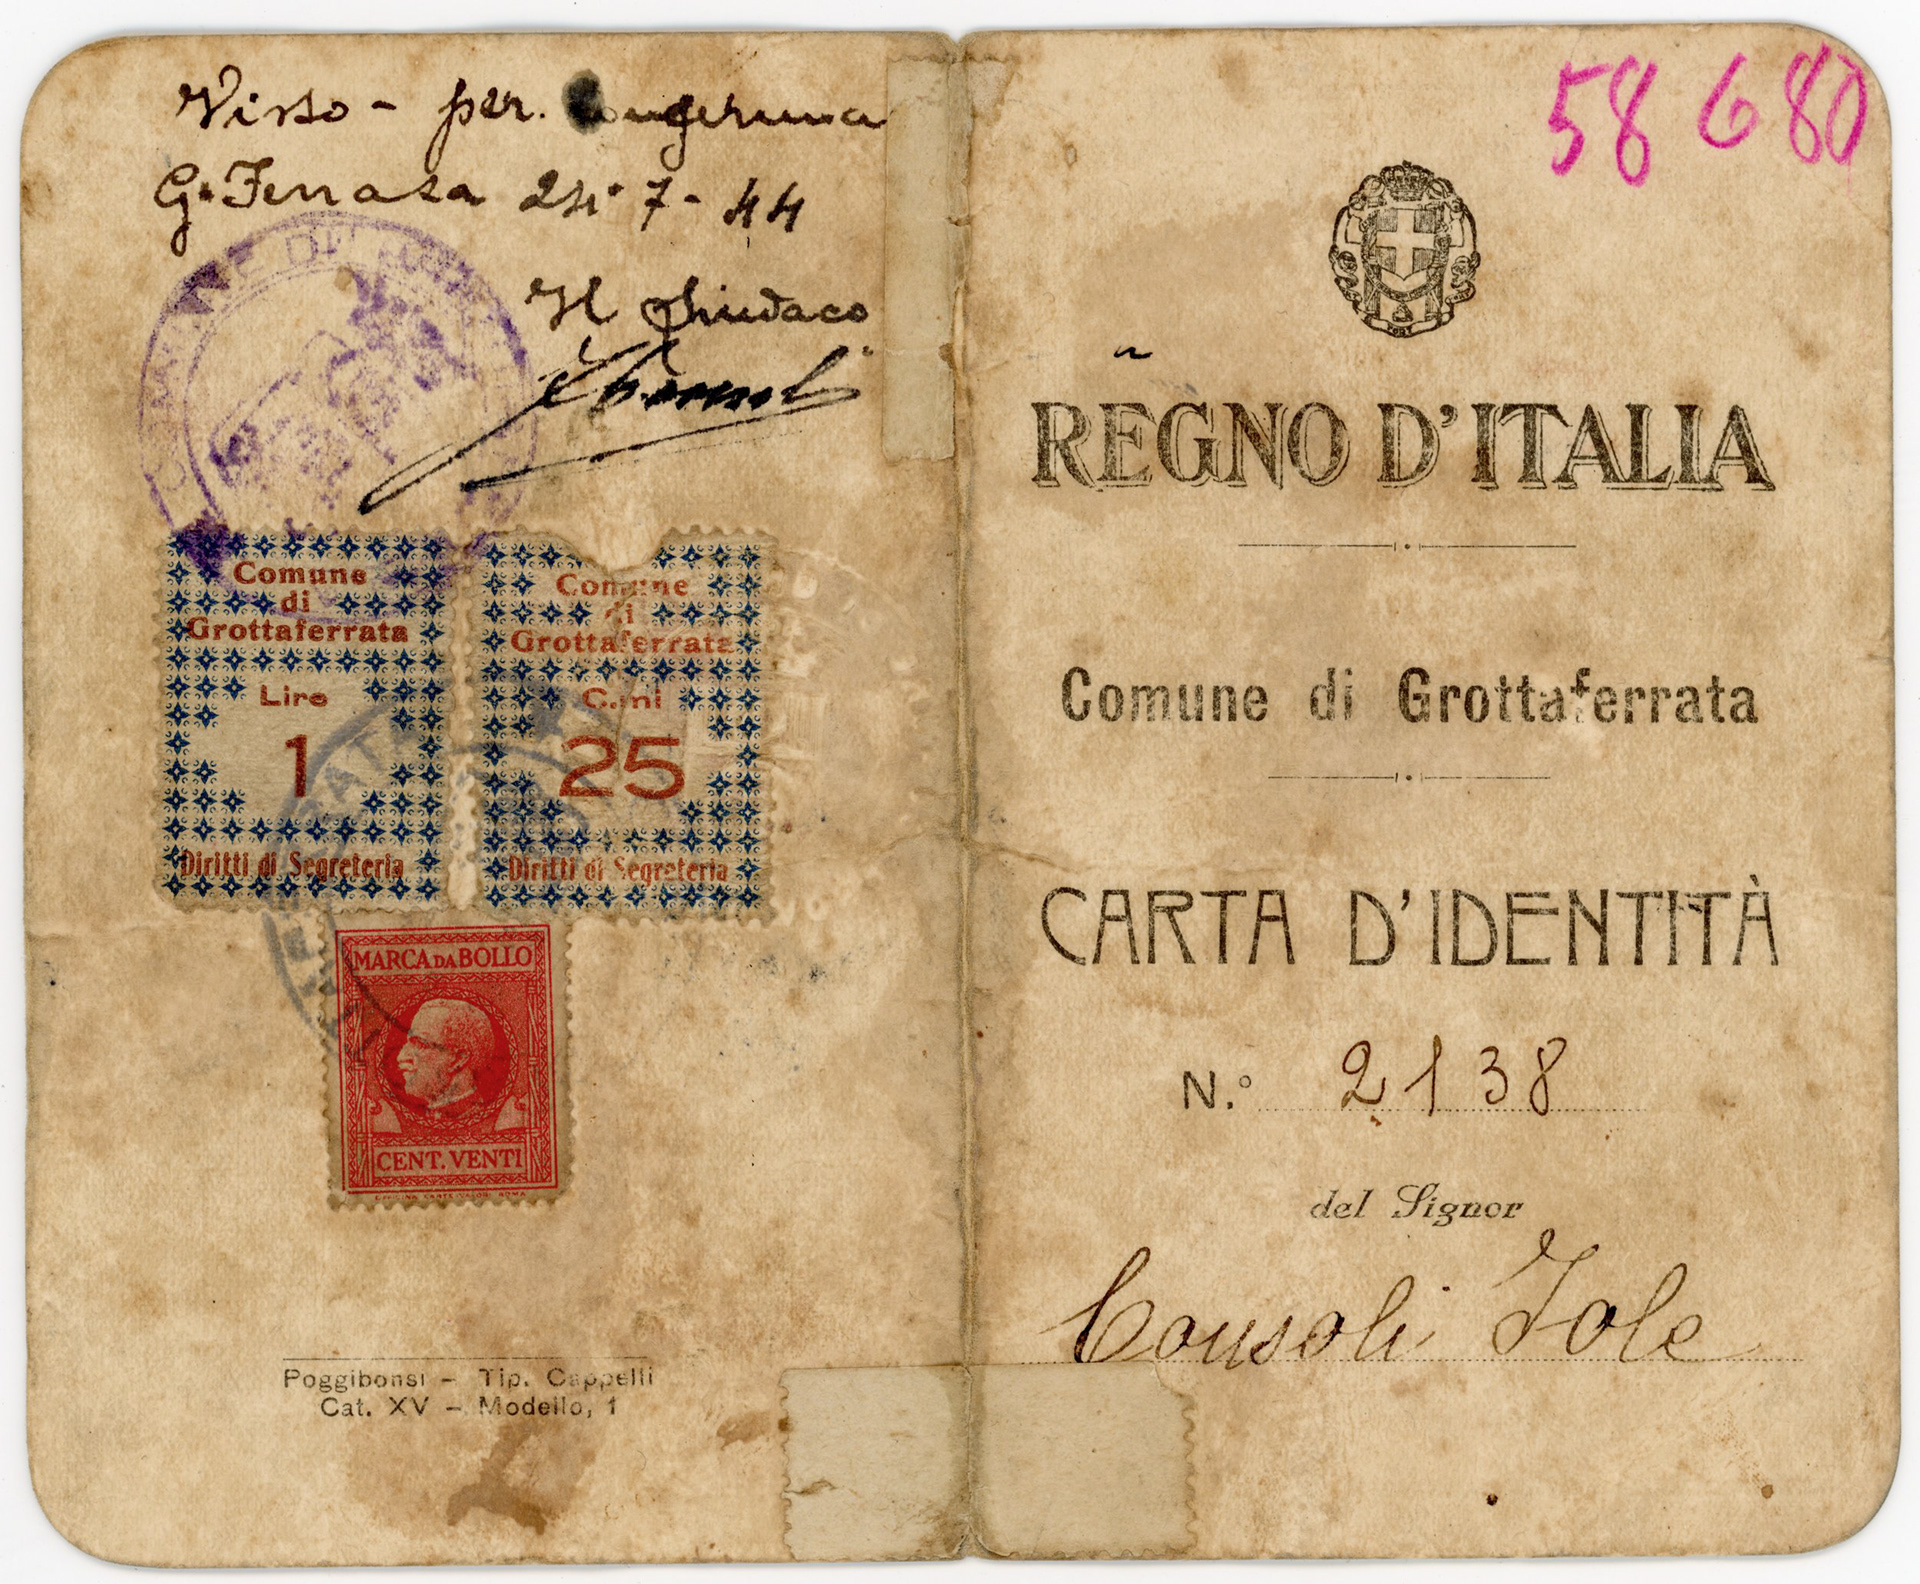 Visto - per conferma
G. Ferrata 24.7.44
Il Sindaco
COMUNE DI
Comune
di
Grottaferrata
Lire
1
Diritti di Segreteria
Comune
di
Grottaferrata
C.mi
25
Diritti di Segreteria
MARCA DA BOLLO
CENT. VENTI
OFFICINA CARTE VALORI ROMA
Poggibonsi - Tip. Cappelli
Cat. XV - Modello, 1
58680
FERT
REGNO D'ITALIA
Comune di Grottaferrata
CARTA D'IDENTITÀ
N.º 2138
del Signor
Consoli Iole